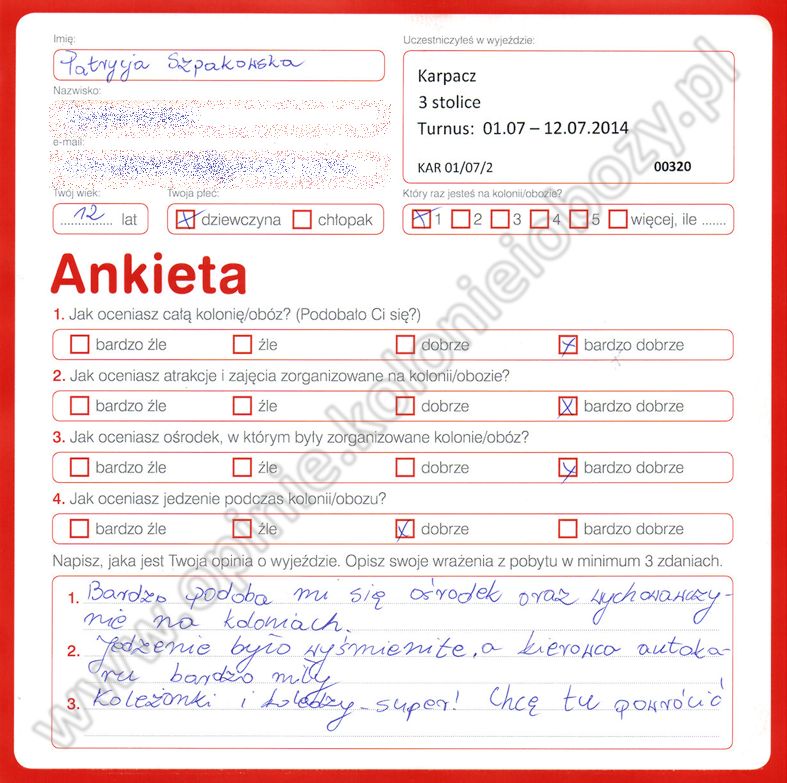 Imię:
Patrycja Szpakowska
Nazwisko:
e-mail:
Twój wiek:
12 lat
Twoja płeć:
dziewczyna chłopak
Uczestniczyłeś w wyjeździe:
Karpacz
3 stolice
Turnus: 01.07 – 12.07.2014
KAR 01/07/2 00320
Który raz jesteś na kolonii/obozie?
1 2 3 4 5 więcej, ile .......
Ankieta
1. Jak oceniasz całą kolonię/obóz? (Podobało Ci się?)
bardzo źle źle dobrze bardzo dobrze
2. Jak oceniasz atrakcje i zajęcia zorganizowane na kolonii/obozie?
bardzo źle źle dobrze bardzo dobrze
3. Jak oceniasz ośrodek, w którym były zorganizowane kolonie/obóz?
bardzo źle źle dobrze bardzo dobrze
4. Jak oceniasz jedzenie podczas kolonii/obozu?
bardzo źle źle dobrze bardzo dobrze
Napisz, jaka jest Twoja opinia o wyjeździe. Opisz swoje wrażenia z pobytu w minimum 3 zdaniach.
1. Bardzo podoba mi się ośrodek oraz wychowawczy-
nie na koloniach.
2. Jedzenie było wyśmienite, a kierowca autoka-
ru bardzo miły
3. Koleżanki i koledzy - super! Chcę tu powrócić
www.opinie.kolonieiobozy.pl